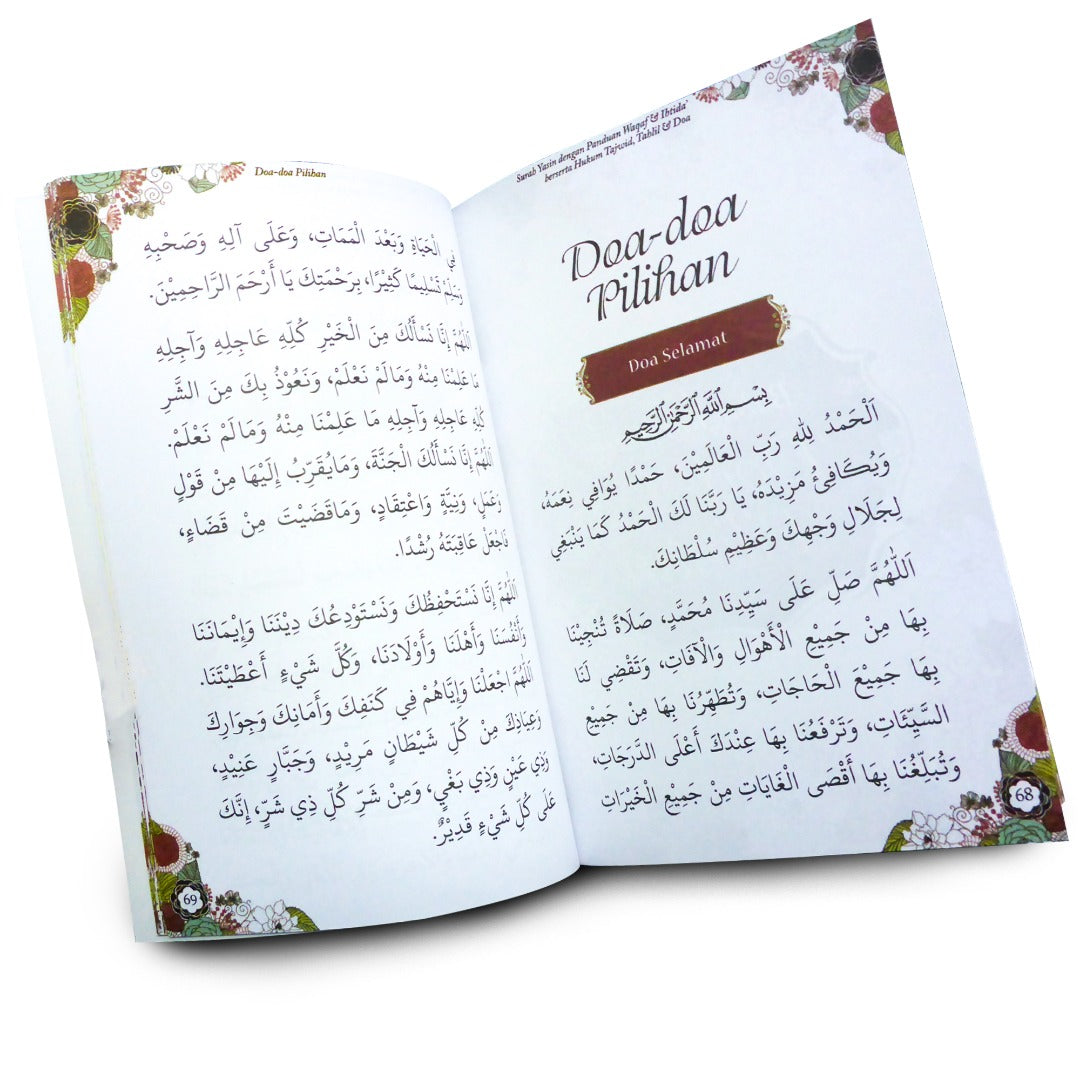 Surah Yasin dengan Panduan Waqaf & Ibtida'
berserta Hukum Tajwid, Tahlil & Doa
Doa-doa
Pilihan
Doa Selamat
بِسْمِ اللَّهِ الرَّحْمَٰنِ الرَّحِيمِ
اَلْحَمْدُ لِلهِ رَبِّ الْعَالَمِيْنَ، حَمْدًا يُوَافِي نِعَمَهُ،
وَيُكَافِئُ مَزِيْدَهُ، يَا رَبَّنَا لَكَ الْحَمْدُ كَمَا يَنْبَغِي
لِجَلَالِ وَجْهِكَ وَعَظِيْمِ سُلْطَانِكَ.
اَللّٰهُمَّ صَلِّ عَلَى سَيِّدِنَا مُحَمَّدٍ، صَلَاةً تُنْجِيْنَا
بِهَا مِنْ جَمِيْعِ الْأَهْوَالِ وَالْآفَاتِ، وَتَقْضِي لَنَا
بِهَا جَمِيْعَ الْحَاجَاتِ، وَتُطَهِّرُنَا بِهَا مِنْ جَمِيْعِ
السَّيِّئَاتِ، وَتَرْفَعُنَا بِهَا عِنْدَكَ أَعْلَى الدَّرَجَاتِ،
وَتُبَلِّغُنَا بِهَا أَقْصَى الْغَايَاتِ مِنْ جَمِيْعِ الْخَيْرَاتِ
68
Doa-doa Pilihan
فِي الْحَيَاةِ وَبَعْدَ الْمَمَاتِ، وَعَلَى آلِهِ وَصَحْبِهِ
وَسَلِّمْ تَسْلِيمًا كَثِيْرًا، بِرَحْمَتِكَ يَا أَرْحَمَ الرَّاحِمِيْنَ.
اَللّٰهُمَّ إِنَّا نَسْأَلُكَ مِنَ الْخَيْرِ كُلِّهِ عَاجِلِهِ وَآجِلِهِ
مَا عَلِمْنَا مِنْهُ وَمَالَمْ نَعْلَمْ، وَنَعُوْذُ بِكَ مِنَ الشَّرِّ
كُلِّهِ عَاجِلِهِ وَآجِلِهِ مَا عَلِمْنَا مِنْهُ وَمَالَمْ نَعْلَمْ.
اَللّٰهُمَّ إِنَّا نَسْأَلُكَ الْجَنَّةَ، وَمَايُقَرِّبُ إِلَيْهَا مِنْ قَوْلٍ
وَعَمَلٍ، وَنِيَّةٍ وَاعْتِقَادٍ، وَمَاقَضَيْتَ مِنْ قَضَاءٍ،
فَاجْعَلْ عَاقِبَتَهُ رُشْدًا.
اَللّٰهُمَّ إِنَّا نَسْتَحْفِظُكَ وَنَسْتَوْدِعُكَ دِيْنَنَا وَإِيْمَانَنَا
وَأَنْفُسَنَا وَأَهْلَنَا وَأَوْلَادَنَا، وَكُلَّ شَيْءٍ أَعْطَيْتَنَا.
اَللّٰهُمَّ اجْعَلْنَا وَإِيَّاهُمْ فِي كَنَفِكَ وَأَمَانِكَ وَجِوَارِكَ
وَعِيَاذِكَ مِنْ كُلِّ شَيْطَانٍ مَرِيْدٍ، وَجَبَّارٍ عَنِيْدٍ،
وَذِي عَيْنٍ وَذِي بَغْيٍ، وَمِنْ شَرِّ كُلِّ ذِي شَرٍّ، إِنَّكَ
عَلَى كُلِّ شَيْءٍ قَدِيْرٌ.
69